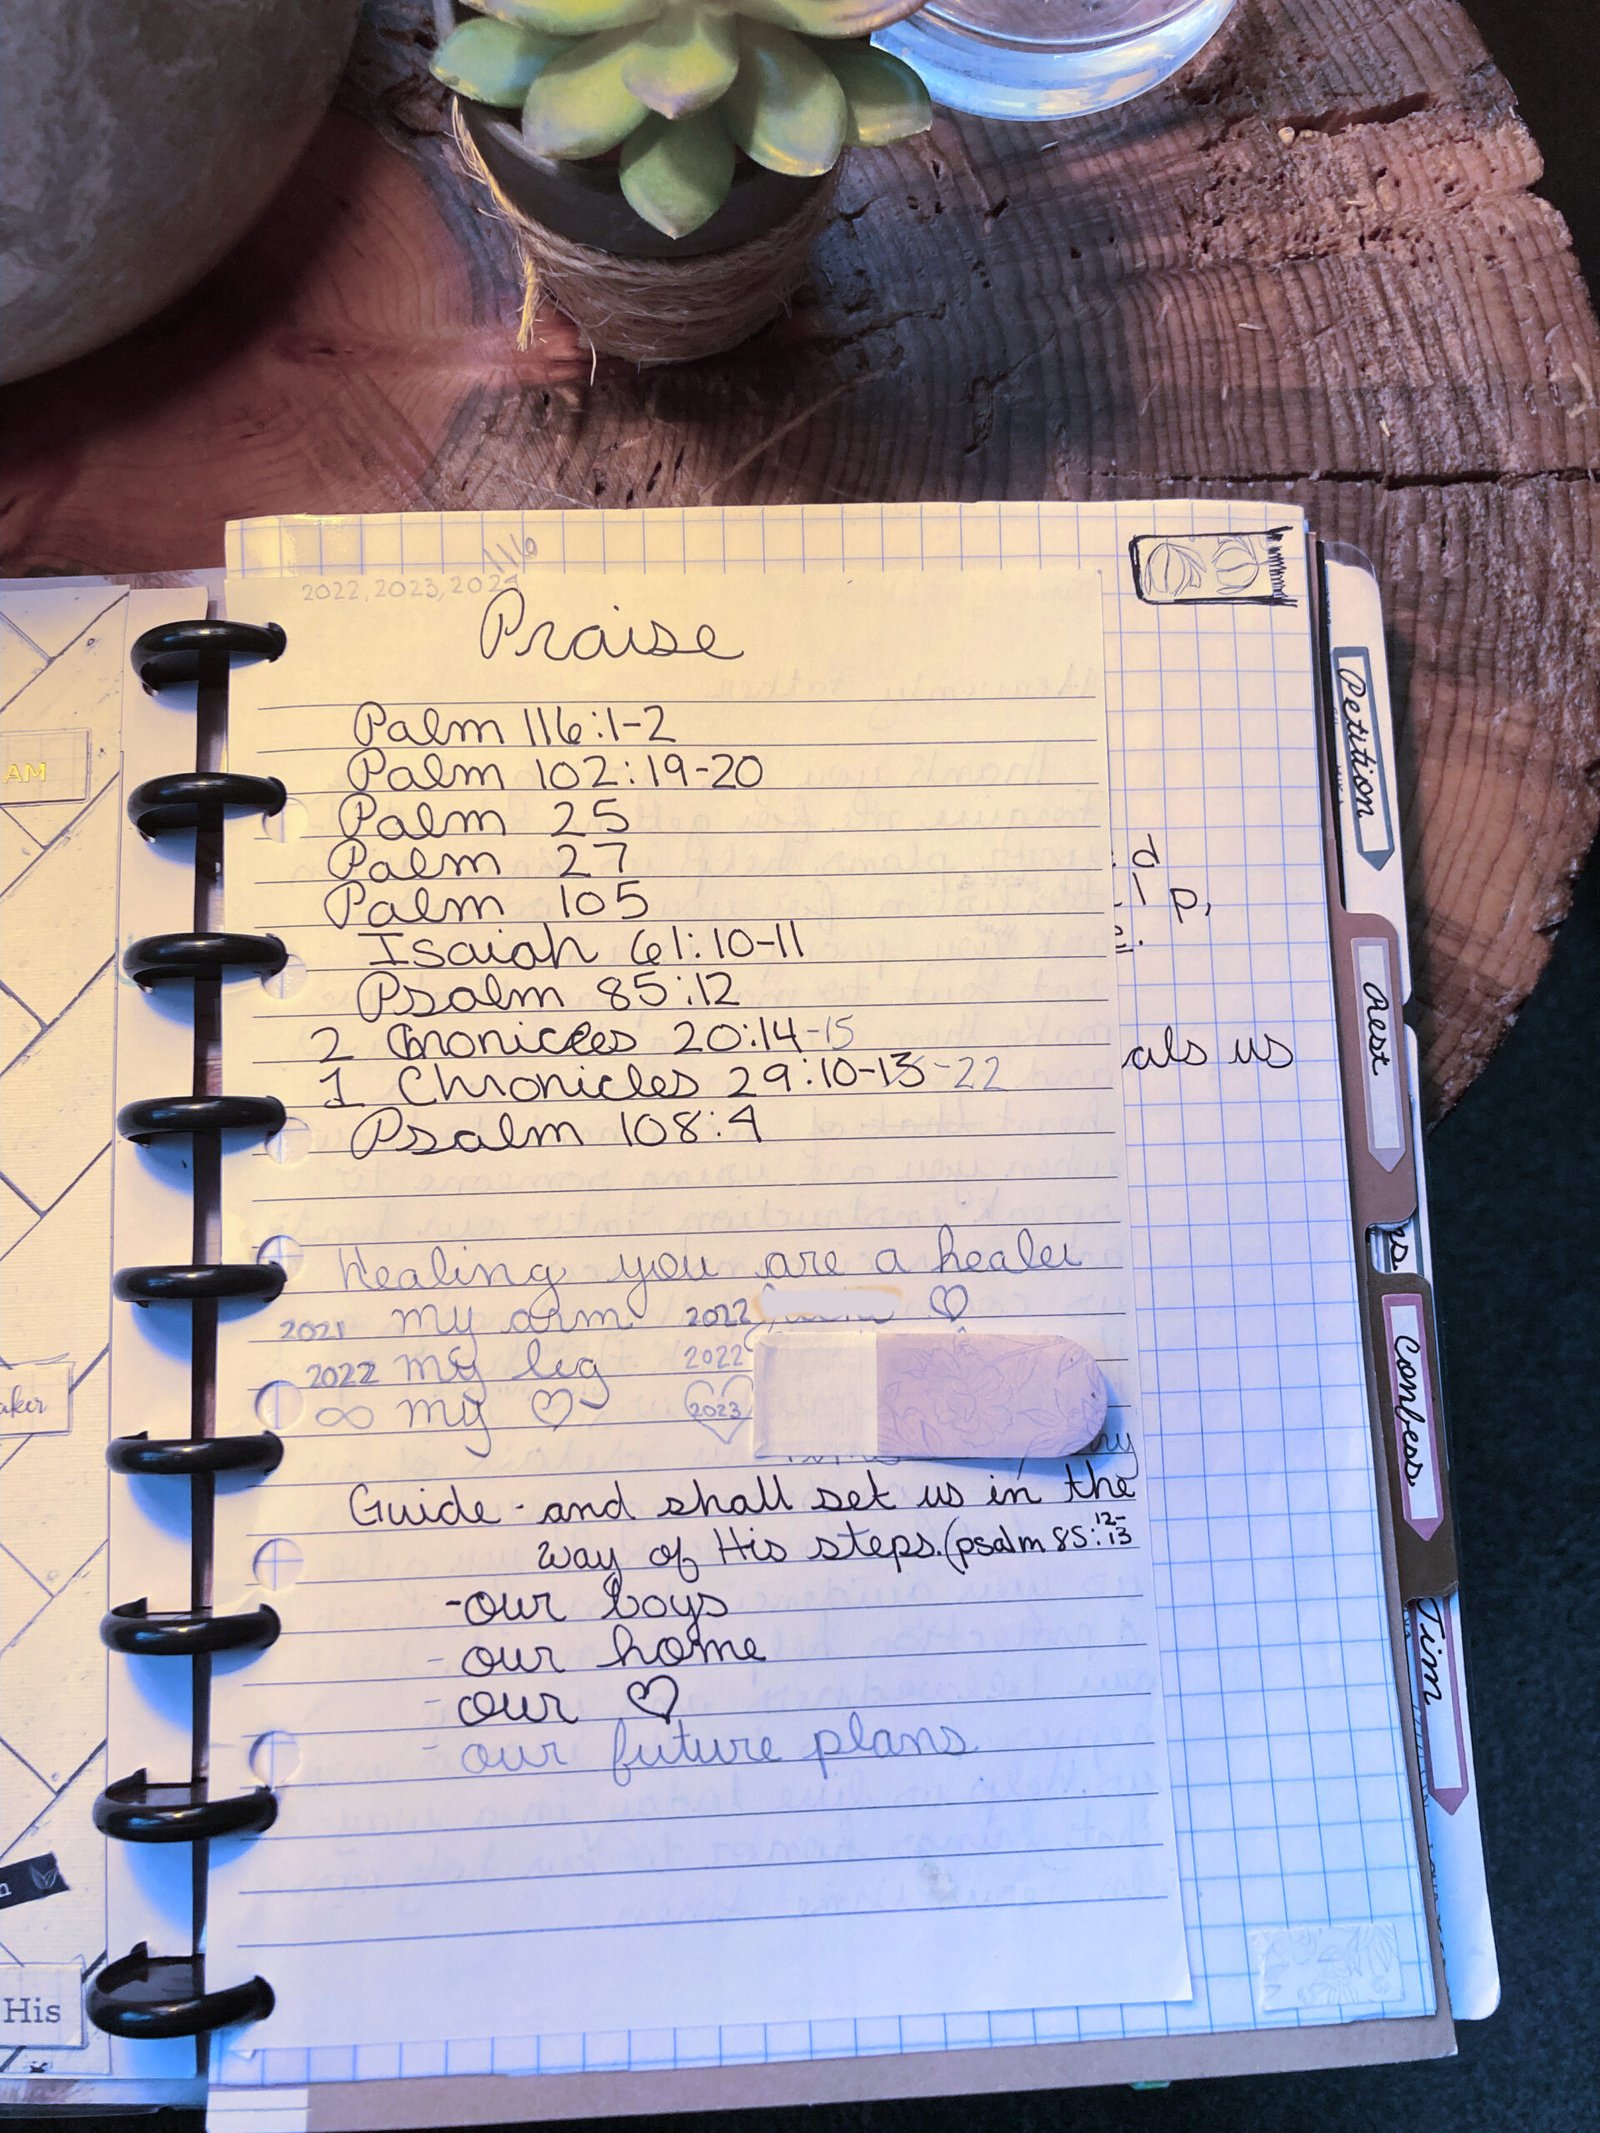 116
2022, 2023, 2024
Praise
Palm 116:1-2
Palm 102:19-20
Palm 25
Palm 27
Palm 105
Isaiah 61:10-11
Psalm 85:12
2 Chronicles 20:14-15
1 Chronicles 29:10-13-22
Psalm 108:4
Healing you are a healer
2021 my arm 2022 ♡
2022 my leg 2022
∞ my ♡ 2023
Guide - and shall set us in the
way of His steps. (psalm 85:12-13
- our boys
- our home
- our ♡
- our future plans
als us
Petition
Rest
Confess
Tim
AM
aker
His